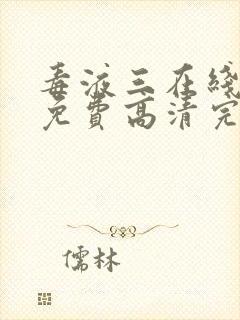 毒液三在线
免费高清完
儒林